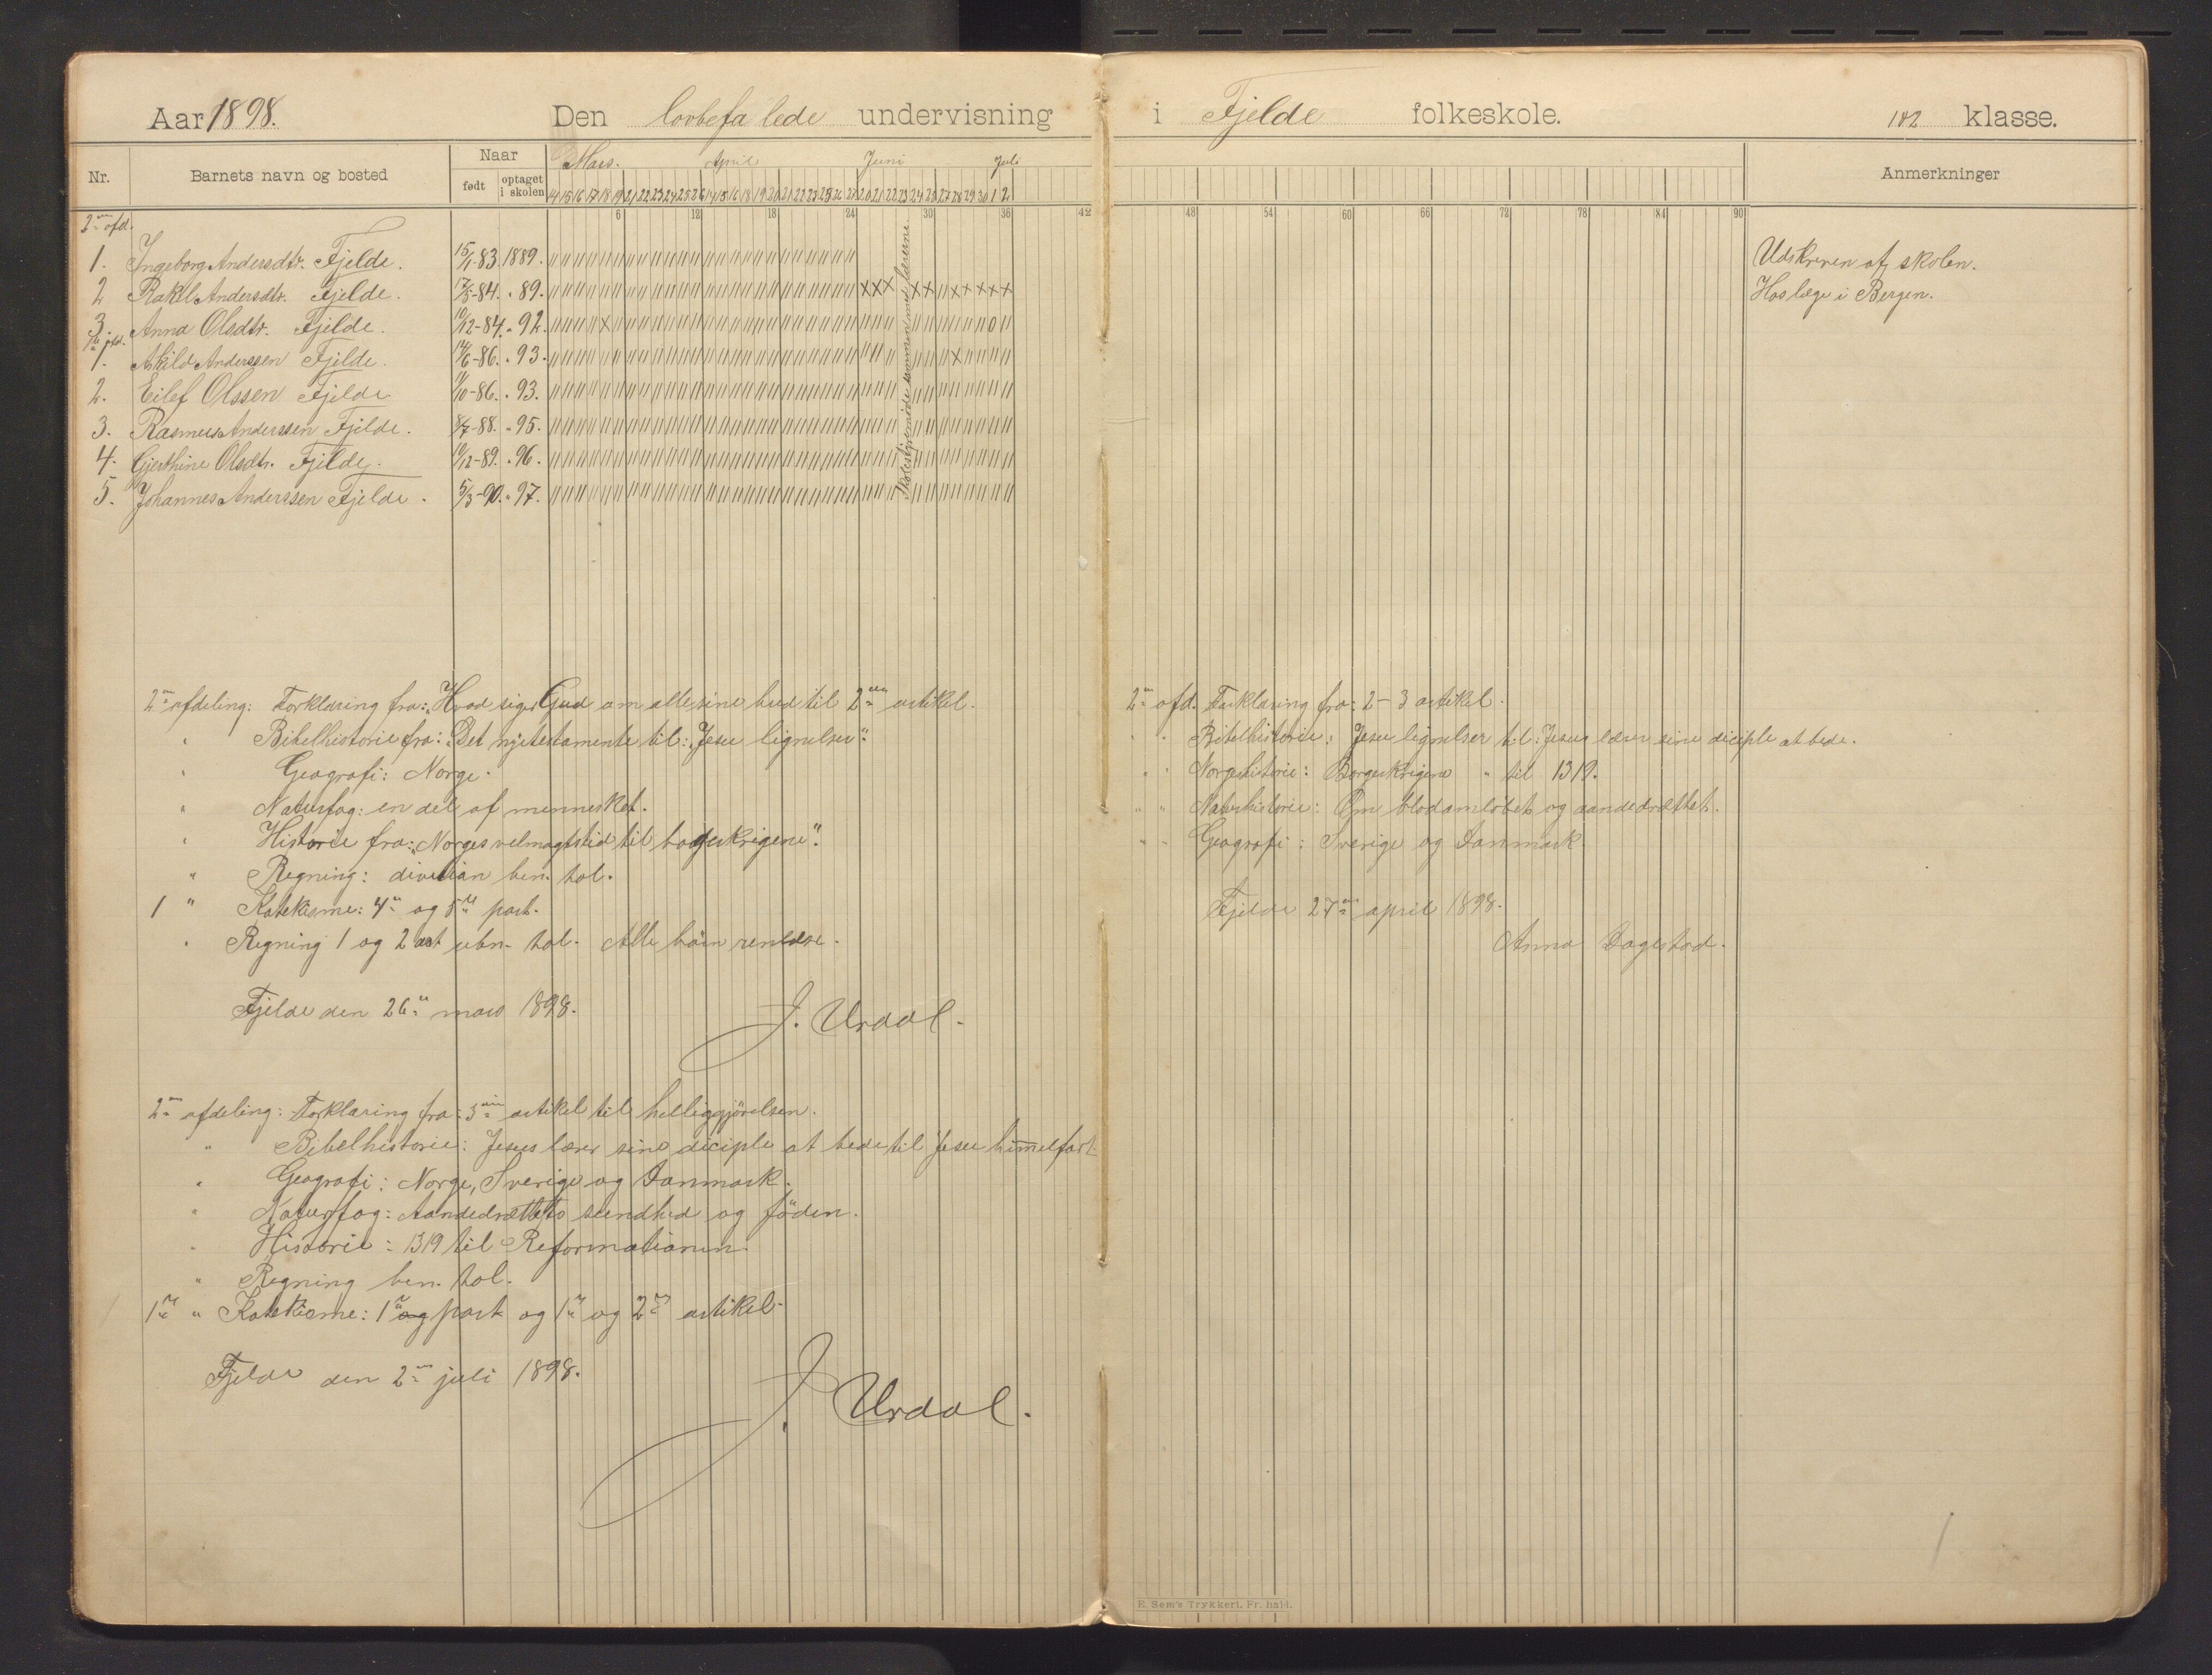 Aar 1898. Den lovbefalede undervisning i Fjelde folkeskole. 1&2 klasse.
Nr. Barnets navn og bosted Naar født optaget i skolen Mars. April Juni Juli Anmerkninger
14 15 16 17 18 19 21 22 23 24 25 26 14 15 16 18 19 20 21 22 23 25 26 27 20 21 22 23 24 25 27 28 29 30 1 2
6 12 18 24 30 36 42 48 54 60 66 72 78 84 90
2den afd.
1. Ingeborg Andersdtr. Fjelde. 15/1-83. 1889. Udskreven af skolen.
2 Rakel Andersdtr. Fjelde. 17/5-84. " 89. Hos læge i Bergen.
3. Anna Olsdtr. Fjelde. 10/12-84. " 92.
1ste afd.
1. Askild Anderssen Fjelde. 14/6-86. " 93.
2. Eilef Olssen Fjelde 11/10-86. " 93.
3. Rasmus Anderssen Fjelde. 8/7-88. " 95.
4. Gjerthine Olsdtr. Fjelde. 10/12-89. " 96.
5. Johannes Anderssen Fjelde. 5/3-90. " 97.
Skolestyremøde sammen med lærerne
2den afdeling: Forklaring fra: "Hvad siger Gud om alle sine bud til 2den artikel.
" Bibelhistorie fra: "Det nye testamente til: "Jesu lignelser".
" Geografi: Norge.
" Naturfag: en del af mennesket.
" Historie fra: "Norges velmagtstid til borgerkrigene".
" Regning: division ben. tal.
1 " Katekisme: 4de og 5te part.
" Regning 1 og 2 art ubn. tal. Alle børn renlæse.
Fjelde den 26de mars 1898.
J. Urdal.
2den afdeling: Forklaring fra: 3die artikel til helliggjörelsen.
" Bibelhistorie: Jesus lærer sine diciple at bede til Jesu himmelfart.
" Geografi: Norge, Sverige og Danmark.
" Naturfag: Aandedrættets sundhed og föden.
" Historie: 1319 til Reformationen.
" Regning ben. tal.
1ste " Katekisme: 1ste og part og 1ste og 2den artikel.
Fjelde den 2den juli 1898.
J. Urdal.
2den afd. Forklaring fra: 2-3 artikel.
" " Bibelhistorie: Jesu lignelser til: Jesus lærer sine diciple at bede.
" " Norgeshistorie: Borgerkrigene " til 1319.
" " Naturhistorie: Om blodomløbet og aandedrættet.
" " Geografi: Sverige og Danmark.
Fjelde 27de april 1898.
Anna Dagestad.
E. Sem's Trykkeri. Fr. hald.